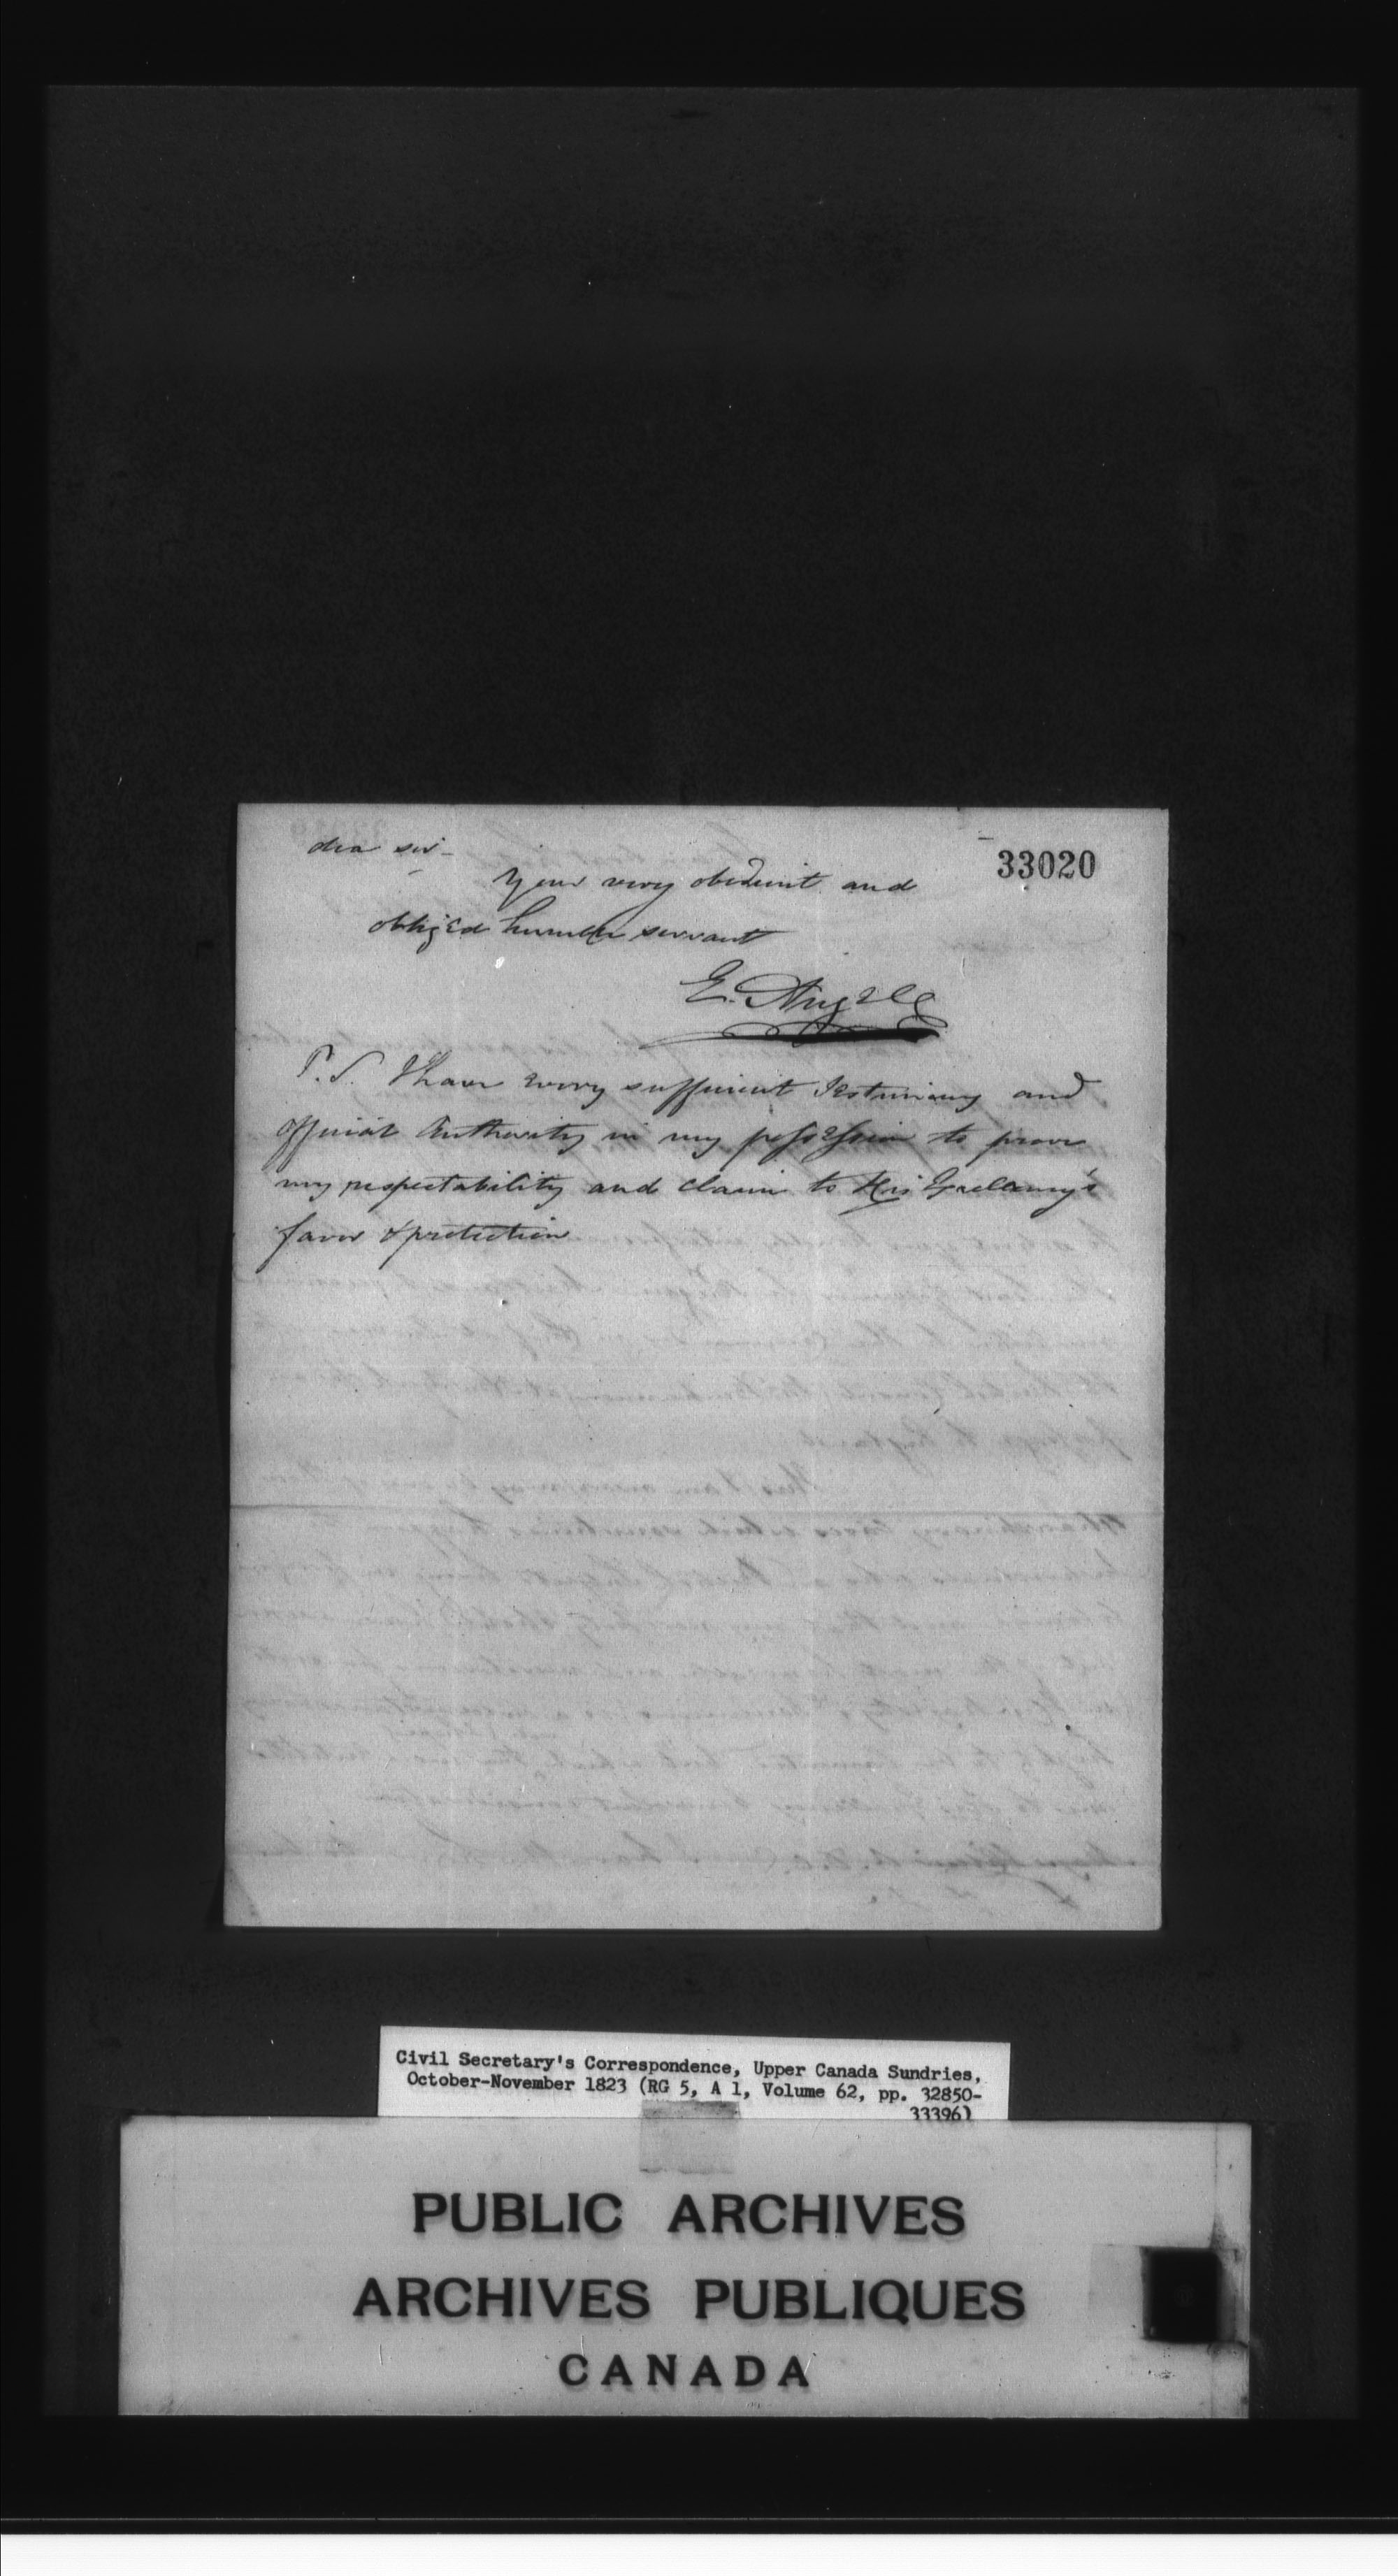 33020
dear sir -
Your very obedient and
obliged humble servant
E. Angell
P.S. I have every sufficient Testimony and
official Authority in my possession to prove
my respectability and claim to His Excellency's
favor & protection
Civil Secretary's Correspondence, Upper Canada Sundries,
October-November 1823 (RG 5, A 1, Volume 62, pp. 32850-
33396)
PUBLIC ARCHIVES
ARCHIVES PUBLIQUES
CANADA